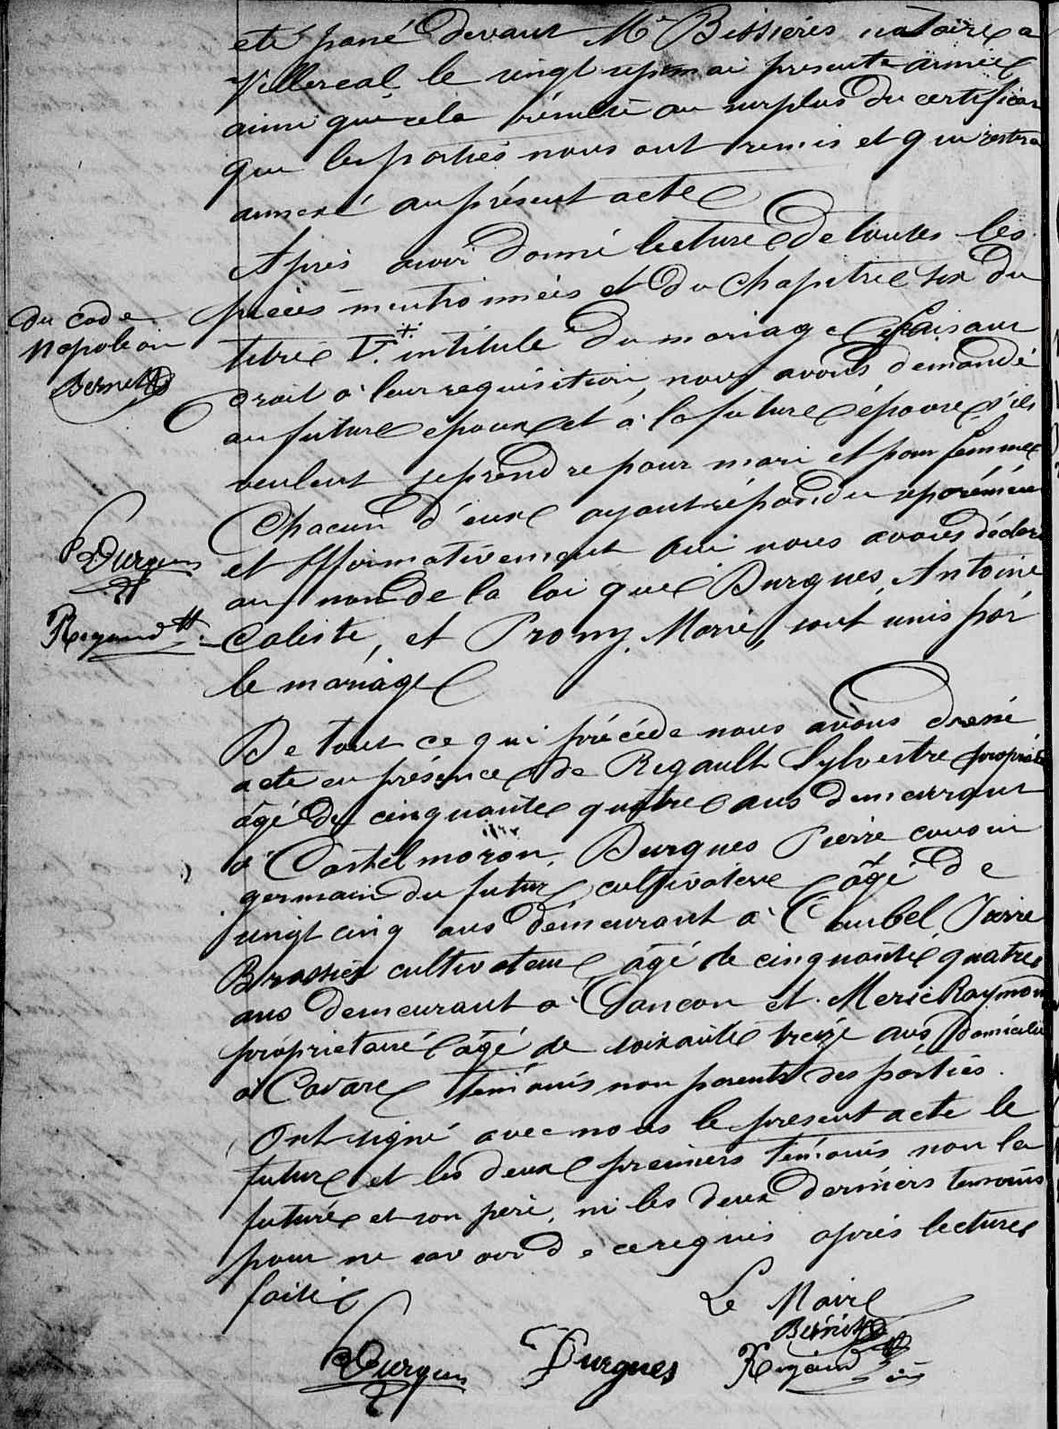 eté passé devant Me Bissieres notaire a
Villereal le vingt sept mai presente année
ainsi que cela résulte au surplus du certificat
que les parties nous ont remis et qui restera
annexé au présent acte
Après avoir donné lecture de toutes les
pièces mentionnées et du chapitre six du
titre V.+ intitulé du mariage faisant
du code
Napoleon
Bernet
droit à leur requisition, nous avons demandé
au future epoux et à la future épouse s'ils
veulent se prendre pour mari et pour femme
Chacun d'eux ayant répondu séparément
et affirmativement oui nous avons déclaré
Burgues
au nom de la loi que Burgues, Antoine
Rigaud
Caliste, et Promy, Marie, sont unis par
le mariage
De tout ce qui précéde nous avons dressé
acte en présence de Rigault Sylvestre propriétaire
âgé de cinquante quatre ans demeurant
à Castelmoron, Burgues Pierre cousin
germain du futur cultivateur âgé de
vingt cinq ans demeurant à Courbel, Pierre
Brassier cultivateur âgé de cinquante quatre
ans demeurant à Dancon et Meric Raymond
propriétaire âgé de soixante treize ans domicilié
à Cavarc témoins non parents des parties.
Ont signé avec nous le present acte le
future et les deux premiers témoins non la
future et son père, ni les deux derniers temoins
pour ne savoir de ce requis après lecture
faite
Le Maire
Bernet
Burgues Burgues Rigaud